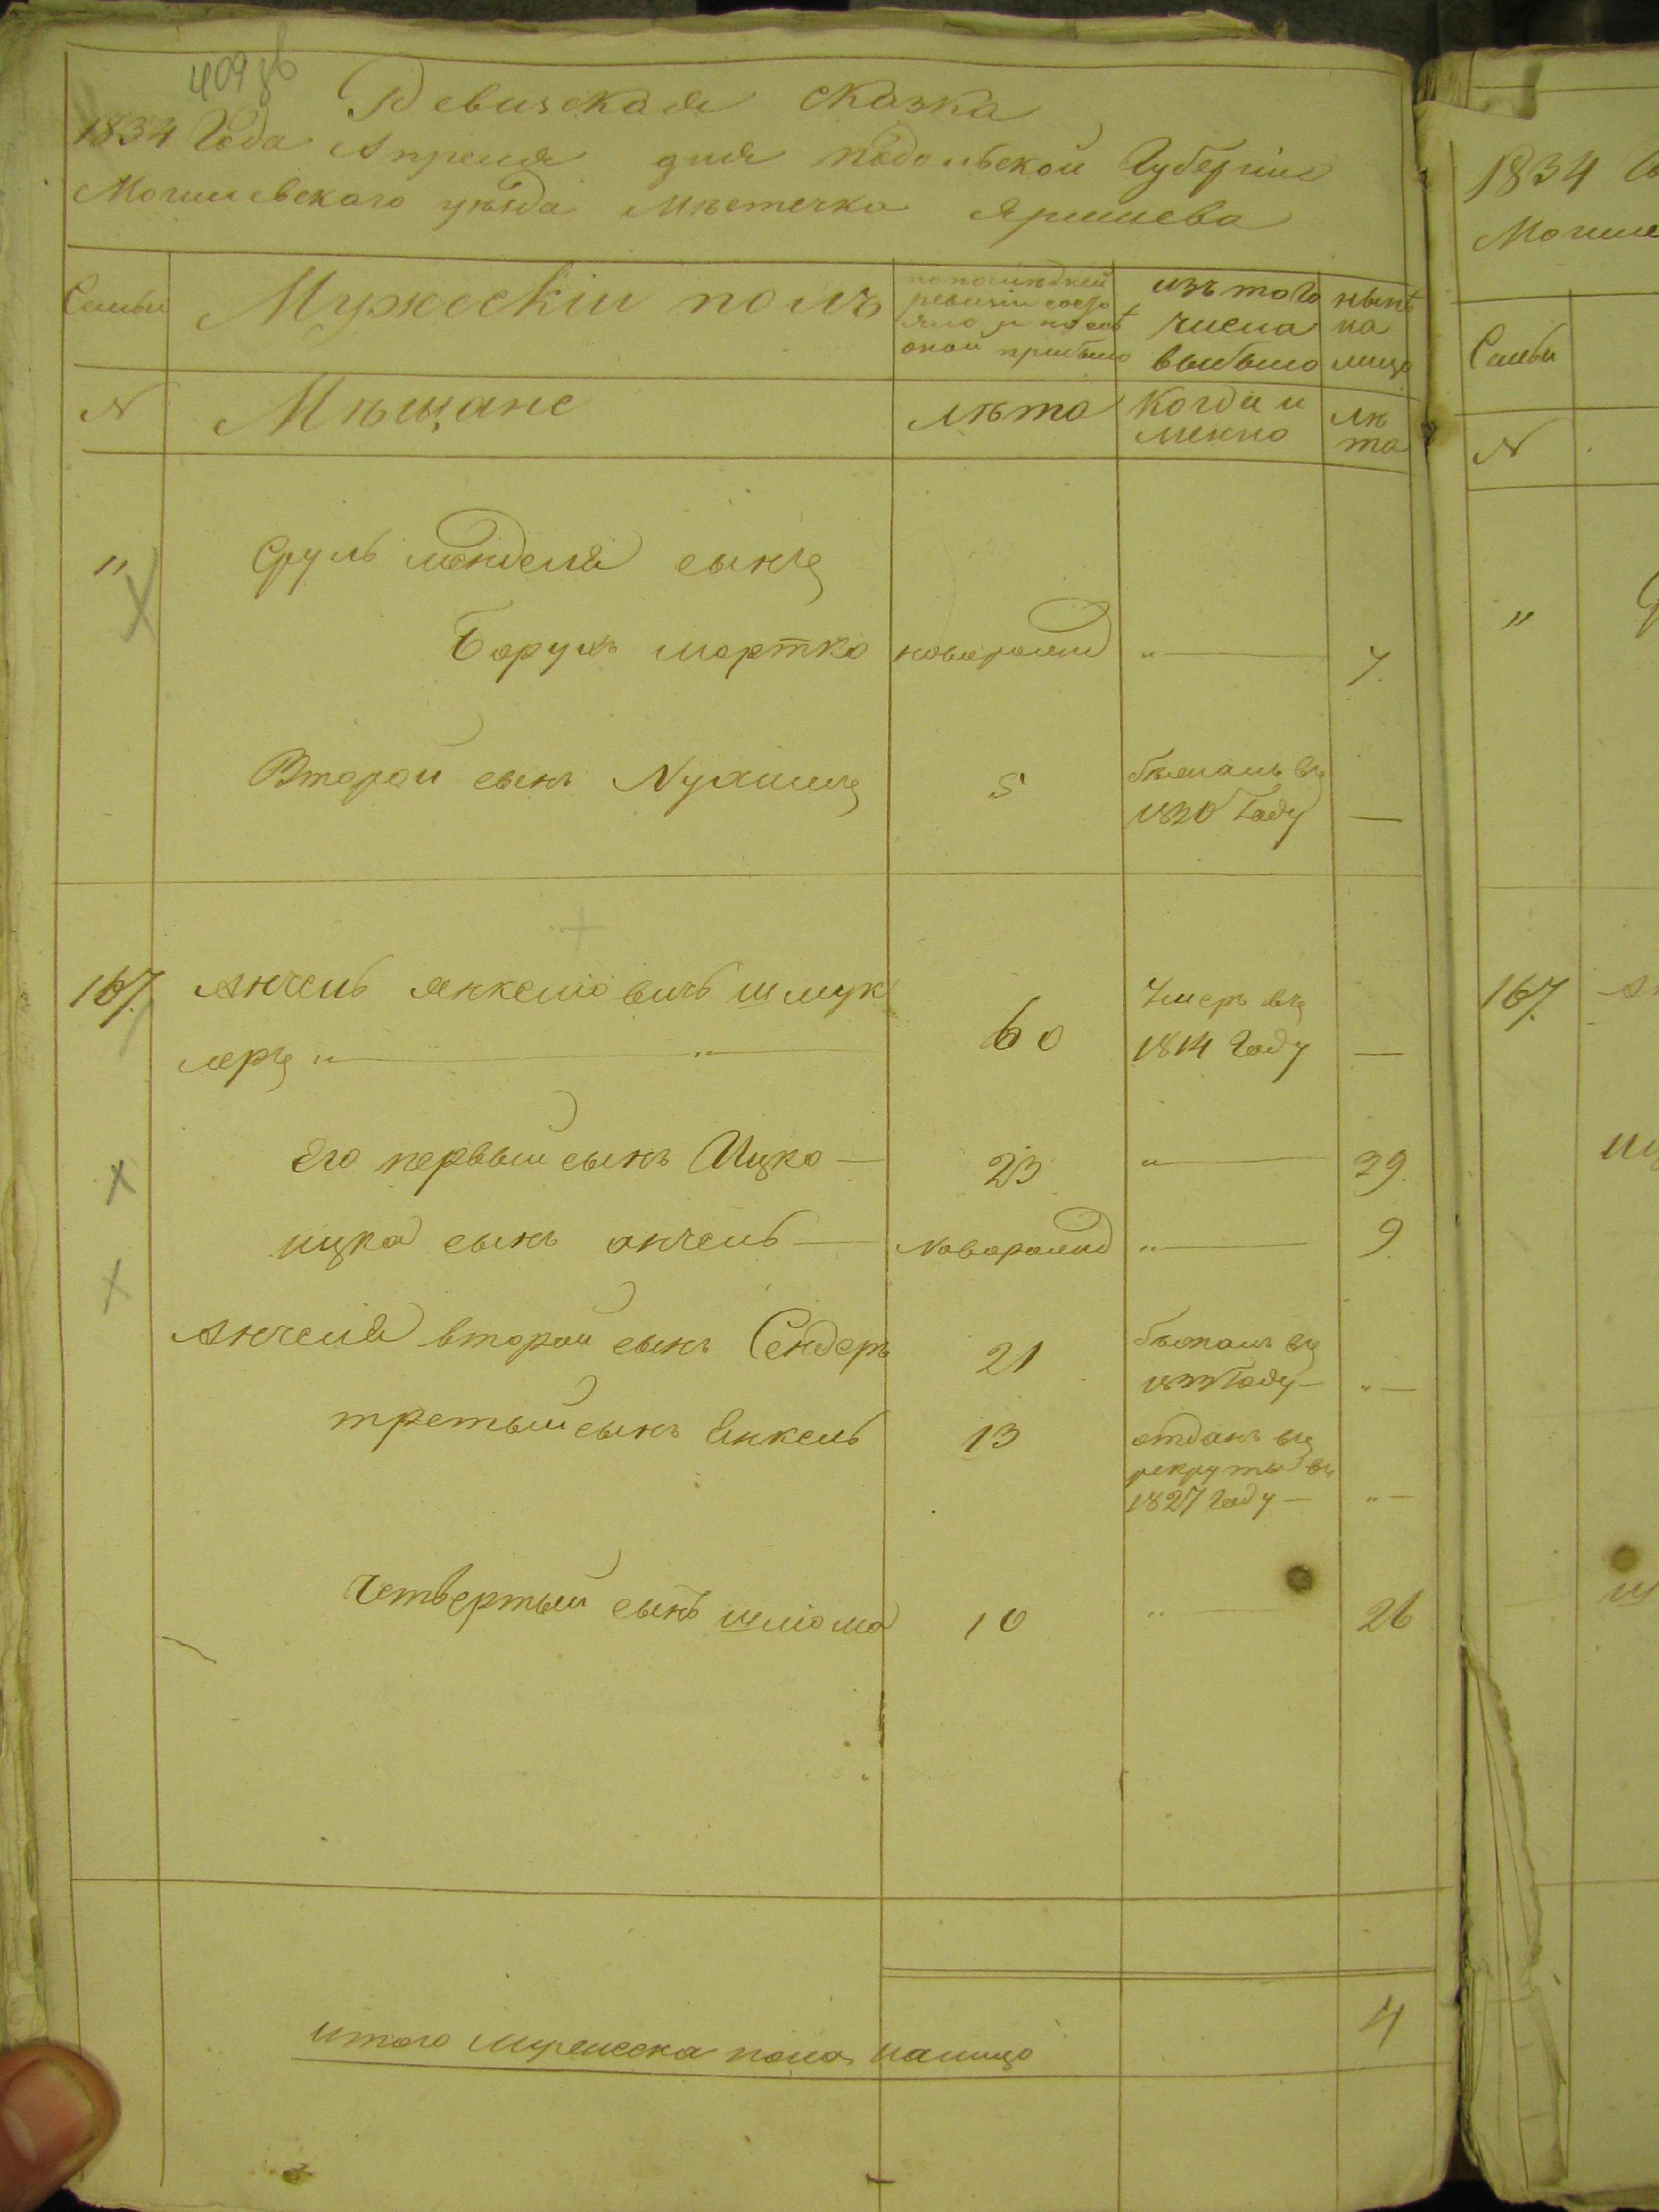 409 об
Ревизская сказка
1834 Года Апреля дня подольской Губерніи
Могилевскаго уѣзда Мѣстечка Яришева
Семьи Мужескій полъ по послѣдней ревизіи состояло и послѣ оной прибыло изъ того числа выбыло нынѣ на лицо
N Мѣщане лѣта Когда и именно лѣта
" Сруль менделя сынъ
Борухъ мортко новорожд " 7.
Второй сынъ Нухимъ 5 бѣжалъ въ
1830 Году —
167. Анчель янкеліовичъ шмук
леръ " " 60 Умеръ въ
1814 Году —
Его первый сынъ Ицко — 23 " 39.
ицка сынъ анчель — Новорожд " 9.
Анчеля второй сынъ Сендеръ 21 бѣжалъ въ
1833 Году — " —
третый сынъ Янкель 13 отданъ въ
рекруты въ
1827 Году — " —
Четвертый сынъ шліома 10 " 26
итого мужеска пола налицо 4
1834
Могиле
Семьи
N
"
167.